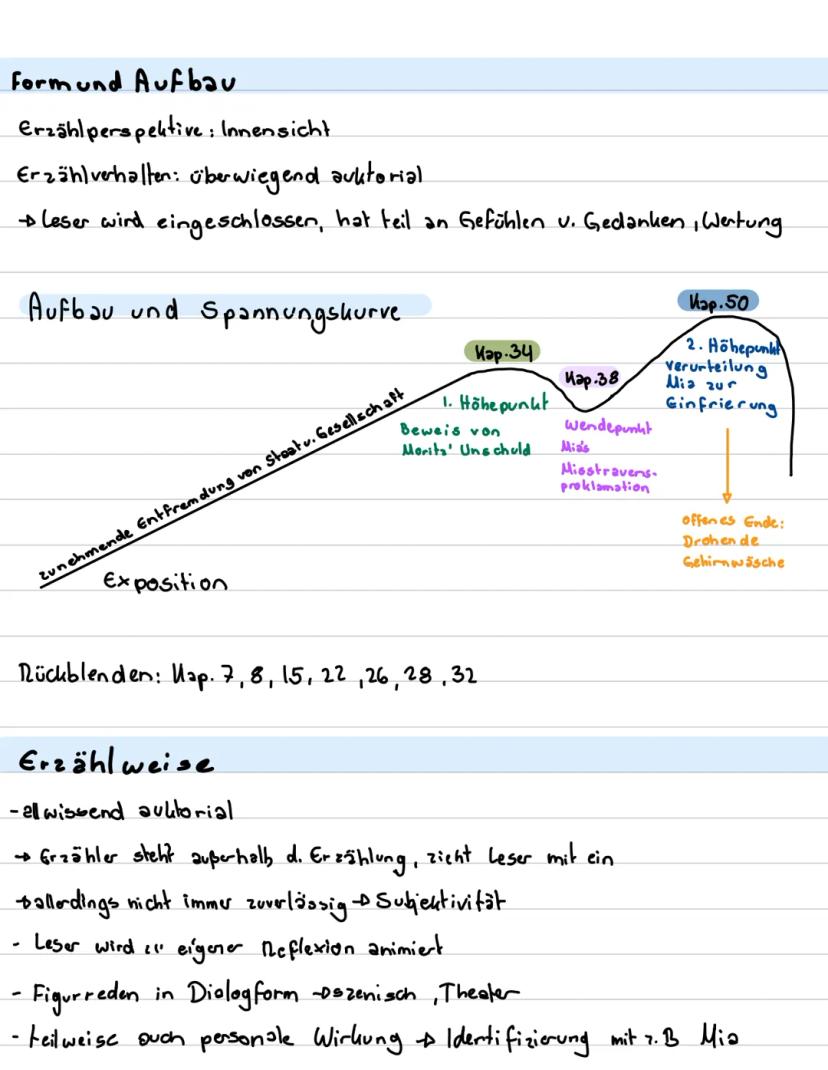 Form und Aufbau
Erzählperspektive: Innensicht
Erzählverhalten: überwiegend auktorial
→ Leser wird eingeschlossen, hat teil an Gefühlen u. Gedanken, Wertung
Aufbau und Spannungskurve
Kap. 50
2. Höhepunkt
verurteilung
Mia zur
Einfrierung
Kap. 34
1. Höhepunkt
Beweis von
Moritz' Unschuld
Kap. 38
Wendepunkt
Mia's
Misstrauens-
proklamation
offenes Ende:
Drohende
Gehirnwäsche
zunehmende Entfremdung von Staat u. Gesellschaft
Exposition
Rückblenden: Kap. 7, 8, 15, 22, 26, 28, 32
Erzählweise
- allwissend auktorial
→ Erzähler steht außerhalb d. Erzählung, zieht Leser mit ein
→ allerdings nicht immer zuverlässig → Subjektivität
- Leser wird zu eigener Reflexion animiert
- Figurreden in Dialogform → szenisch, Theater
- teilweise auch personale Wirkung → Identifizierung mit z.B Mia